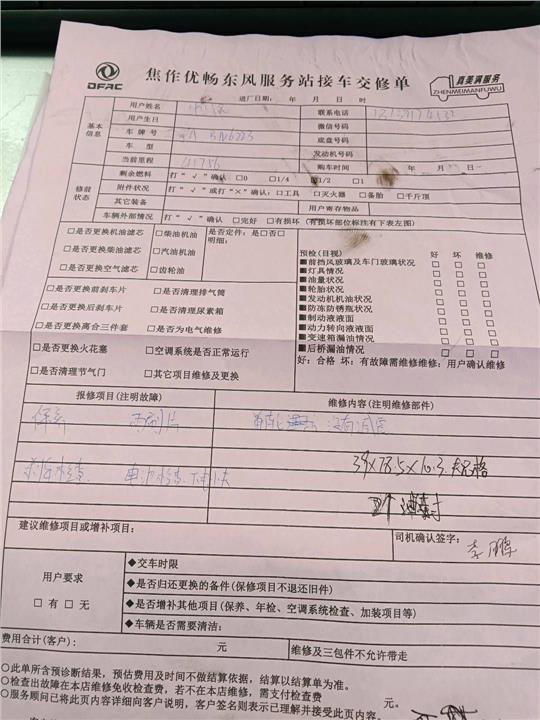 DFAC
焦作优畅东风服务站接车交修单
真美满服务
ZHENMEIMANFUWU
进厂日期： 年 月 日 时
基本信息
用户姓名
联系电话
用户生日
微信号码
车牌号
底盘号码
车型
发动机号码
当前里程 购车时间 年 日
修前状态
剩余燃料 打“√”确认 □0 □1/4 □1/2 □1
附件状况 打“√”或打“×”确认：□工具 □灭火器 □备胎 □千斤顶
其它装备 用户寄存物品
车辆外部情况 打“√”确认 □完好 □有损坏（有损坏部位标注有下表左图）
□是否更换机油滤芯 □柴油机油 是否定件：是□否□
□是否更换柴油滤芯 □汽油机油 明细：
□是否更换空气滤芯 □齿轮油
□是否更换前刹车片 □是否清理排气筒
□是否更换后刹车片 □是否清理尿素箱
□是否更换离合三件套 □是否为电气维修
□是否更换火花塞 □空调系统是否正常运行
□是否清理节气门 □其它项目维修及更换
预检（目视） 好 坏 维修
■前挡风玻璃及车门玻璃状况 □ □ □
■灯具情况 □ □ □
■油量状况 □ □ □
■轮胎状况 □ □ □
■发动机机油状况 □ □ □
■防冻防锈瓶状况 □ □ □
■制动液液面 □ □ □
■动力转向液液面 □ □ □
■变速箱漏油情况 □ □ □
■后桥漏油情况 □ □ □
好：合格 坏：有故障需维修维修：用户确认维修
报修项目（注明故障） 维修内容（注明维修部件）
保养
39×78.5×10.3
建议维修项目或增补项目：
司机确认签字：
李鹏
用户要求
□有 □无
◆交车时限
◆是否归还更换的备件（保修项目不退还旧件）
◆是否增补其他项目（保养、年检、空调系统检查、加装项目等）
◆车辆是否需要清洁：
费用合计（客户）： 元 维修及三包件不允许带走
○此单所含预诊断结果，预估费用及时间不做结算依据，结算以结算单为准。
○检查出故障在本店维修免收检查费，若不在本店维修，需支付检查费 元。
○服务顾问已将此页内容详细向客户说明，客户签名则表示已理解并接受此页内容。